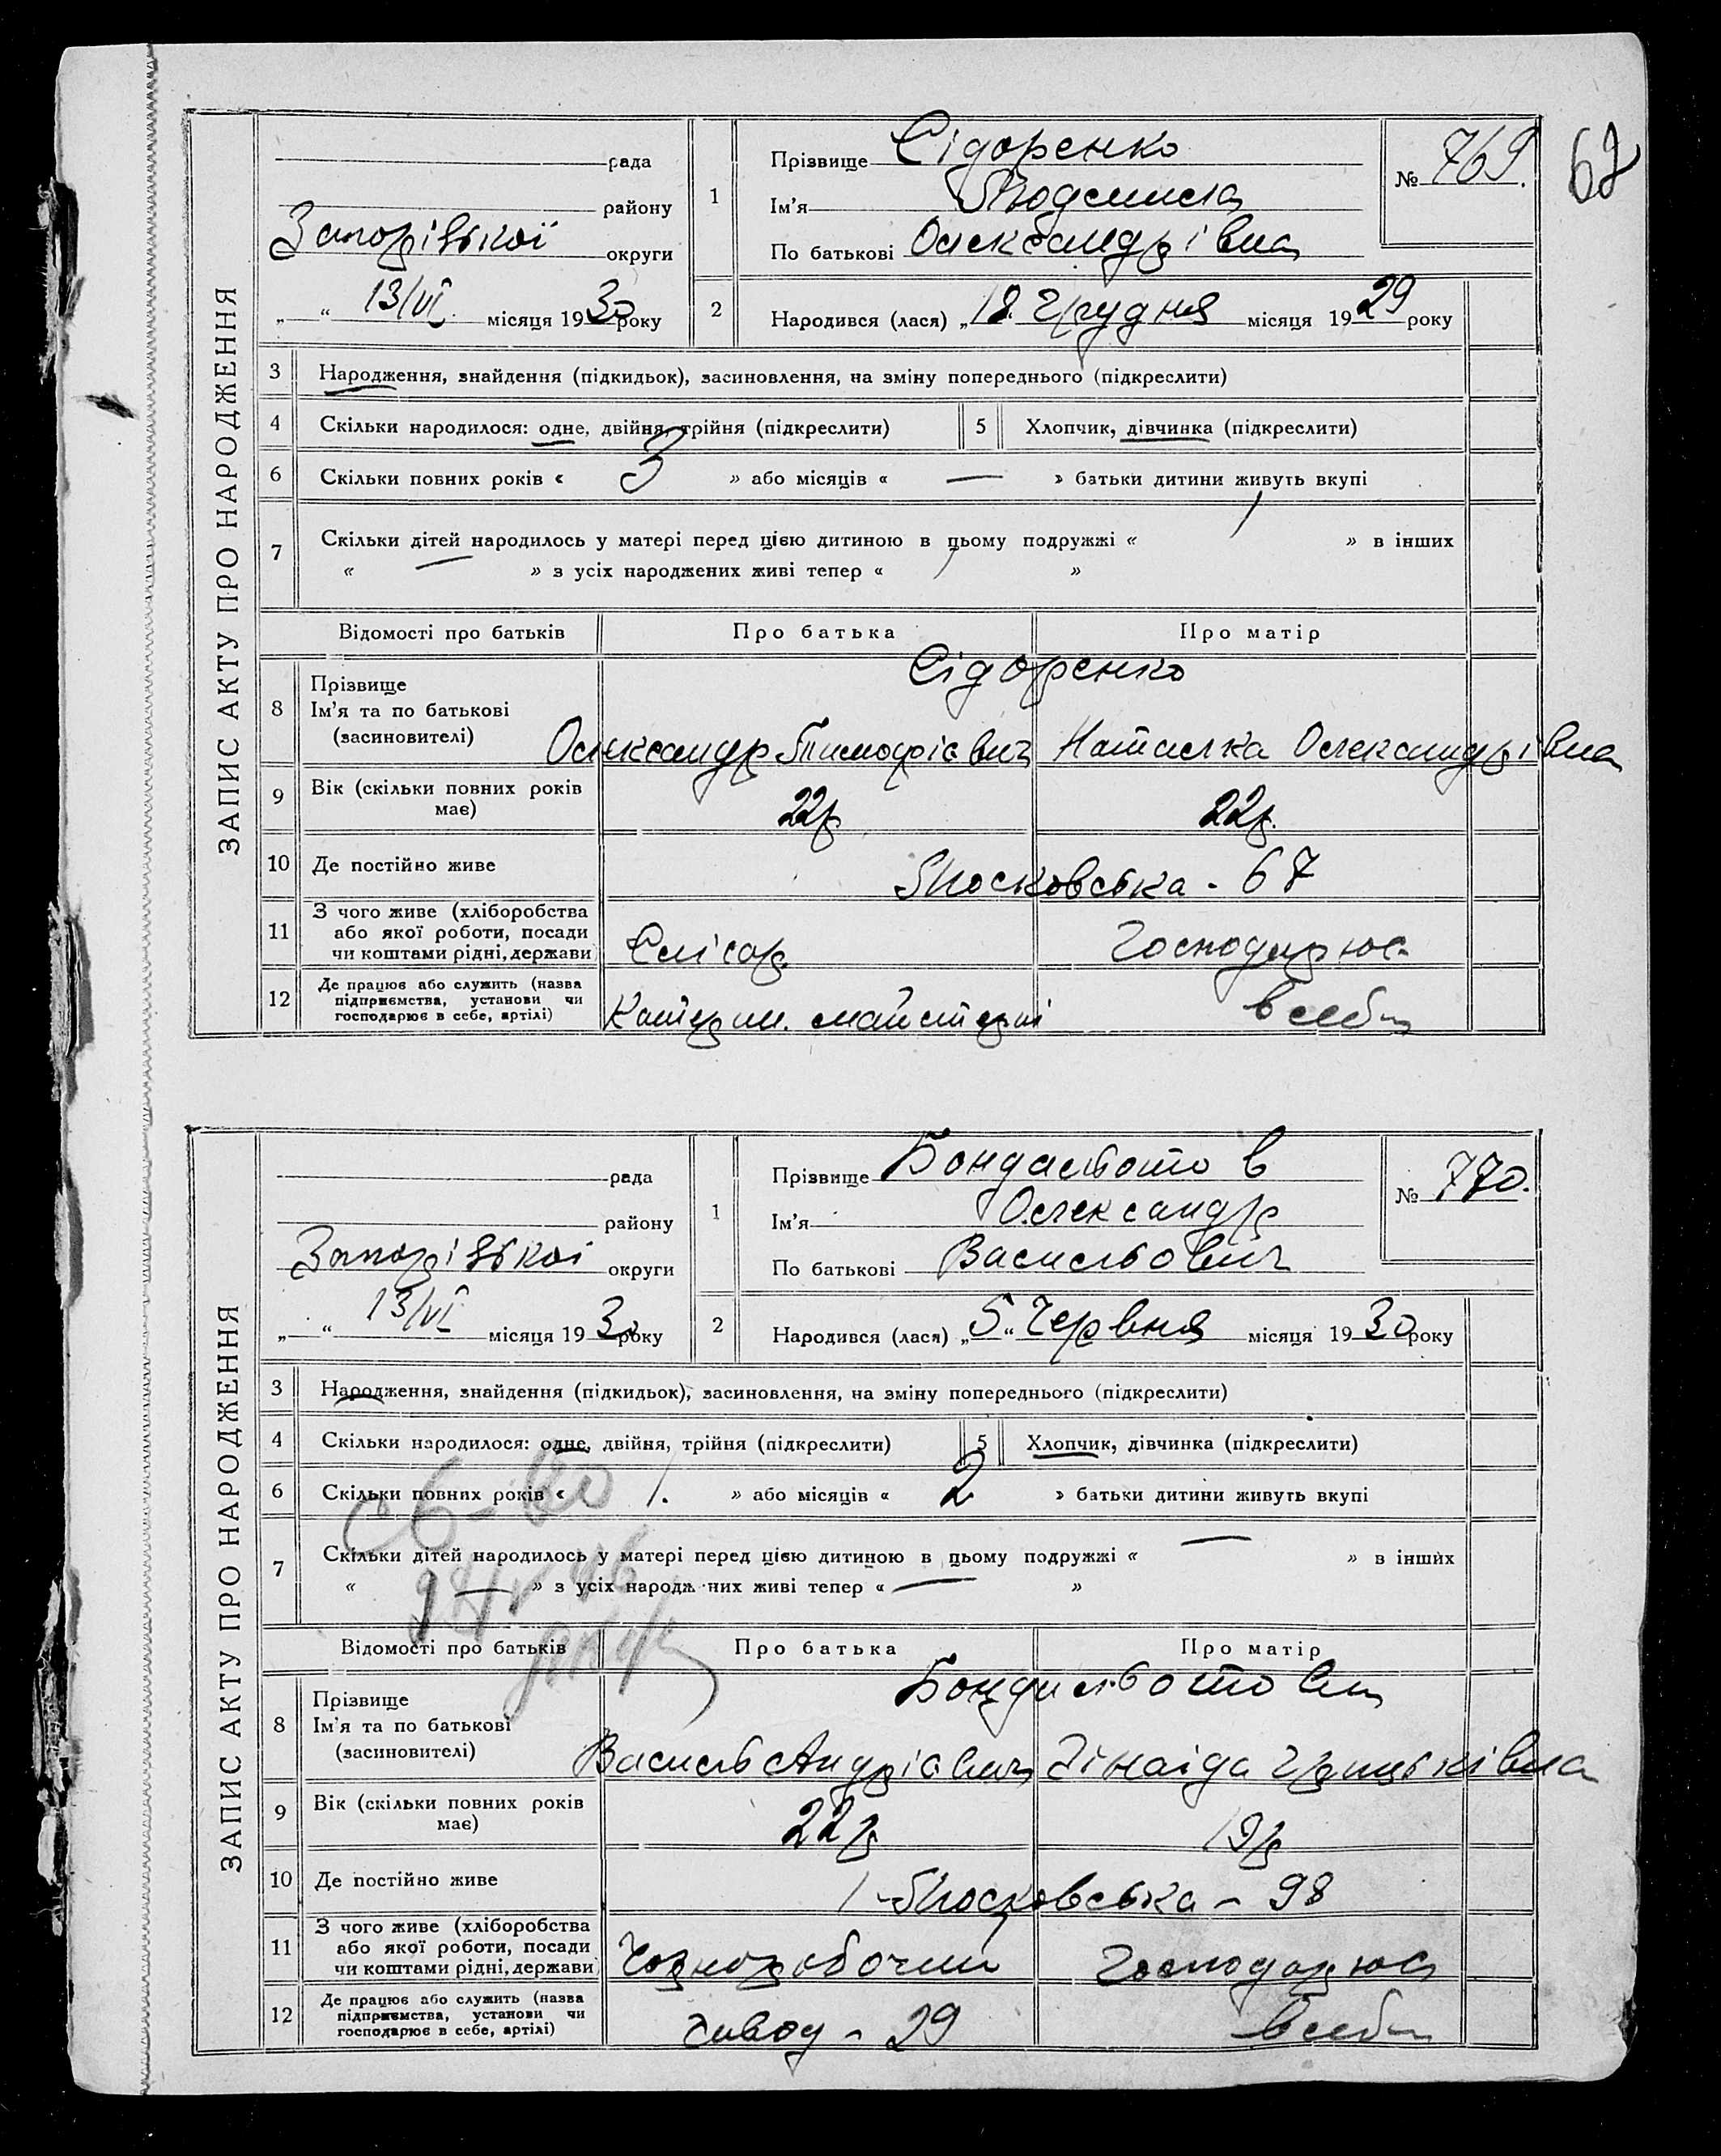 62
ЗАПИС АКТУ ПРО НАРОДЖЕННЯ
рада
району
Запорізької округи
„ “ 13/VI місяця 1930 року
1 Прізвище Сідоренко
Ім’я Людмила
По батькові Олександрівна
№ 769.
2 Народився (лася) „18 Грудня місяця 1929 року
3 Народження, знайдення (підкидьок), засиновлення, на зміну попереднього (підкреслити)
4 Скільки народилося: одне, двійня, трійня (підкреслити) 5 Хлопчик, дівчинка (підкреслити)
6 Скільки повних років « 3 » або місяців « — » батьки дитини живуть вкупі
7 Скільки дітей народилось у матері перед цією дитиною в цьому подружжі « 1 » в інших
« — » з усіх народжених живі тепер « 1 »
Відомості про батьків Про батька Про матір
8 Прізвище Сідоренко
Ім’я та по батькові
(засиновителі) Олександр Тимофієвич Наталка Олександрівна
9 Вік (скільки повних років має) 22р 22р.
10 Де постійно живе Московська - 67
11 З чого живе (хліборобства
або якої роботи, посади
чи коштами рідні, держави) Слісар Господарює
12 Де працює або служить (назва
підприємства, установи чи
господарює в себе, артілі) майстерні в себе
ЗАПИС АКТУ ПРО НАРОДЖЕННЯ
рада
району
Запорізької округи
„ “ 13/VI місяця 1930 року
1 Прізвище Бондальотов
Ім’я Олександр
По батькові Васильович
№ 770.
2 Народився (лася) „5“ Червня місяця 1930 року
3 Народження, знайдення (підкидьок), засиновлення, на зміну попереднього (підкреслити)
4 Скільки народилося: одне, двійня, трійня (підкреслити) 5 Хлопчик, дівчинка (підкреслити)
6 Скільки повних років « 1. » або місяців « 2 » батьки дитини живуть вкупі
7 Скільки дітей народилось у матері перед цією дитиною в цьому подружжі « — » в інших
« — » з усіх народжених живі тепер « — »
Відомості про батьків Про батька Про матір
8 Прізвище Бондальотови
Ім’я та по батькові
(засиновителі) Василь Андрієвич Зінаіда Грицьківна
9 Вік (скільки повних років має) 22р 19р
10 Де постійно живе Московська - 98
11 З чого живе (хліборобства
або якої роботи, посади
чи коштами рідні, держави) Чорноробочий Господарює
12 Де працює або служить (назва
підприємства, установи чи
господарює в себе, артілі) Завод - 29 в себе